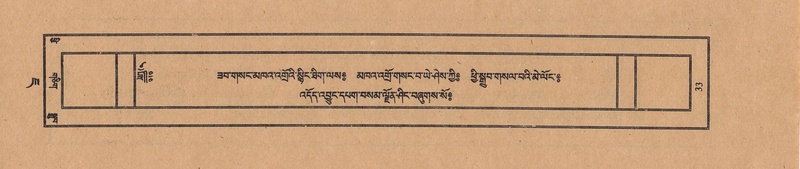 ཟབ་གསང་མཁའ་འགྲོའི་སྙིང་ཐིག་ལས༔ མཁའ་འགྲོ་གསང་བ་ཡེ་ཤེས་ཀྱི༔ ཕྱི་སྒྲུབ་གསལ་བའི་མེ་ལོང་༔
འདོད་འབྱུང་དཔག་བསམ་ལྗོན་ཤིང་བཞུགས་སོ༔
33